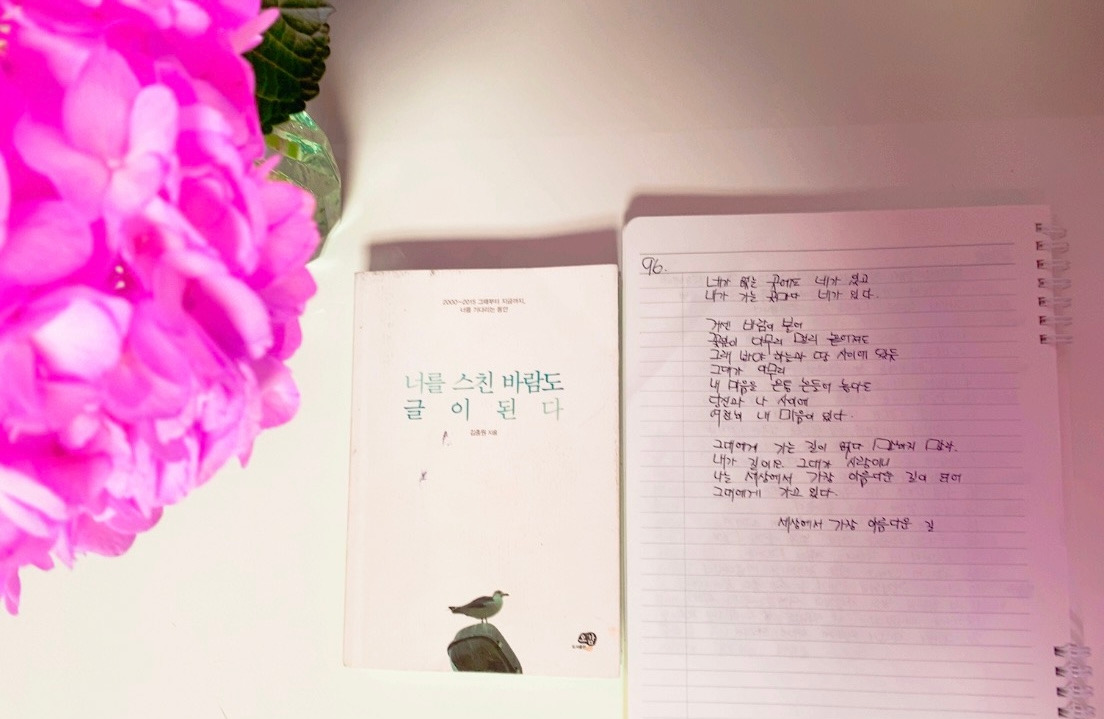 2000~2015 그때부터 지금까지,
너를 기다리는 동안
너를 스친 바람도
글이 된다
김종원 지음
96.
네가 없는 곳에도 네가 있고
내가 가는 곳마다 네가 있다.
거친 바람이 불어
꽃잎이 나무와 멀리 떨어져도
그래 봐야 하늘과 땅 사이에 있듯
그대가 아무리
내 마음을 흔들
당신과 나 사이에
여전히 내 마음이 있다.
그대에게 가는 길이 없다 말하지 말라.
내가 길이고 그대가 사랑이니
나는 세상에서 가장 아름다운 길이 되어
그대에게 가고 있다.
세상에서 가장 아름다운 길